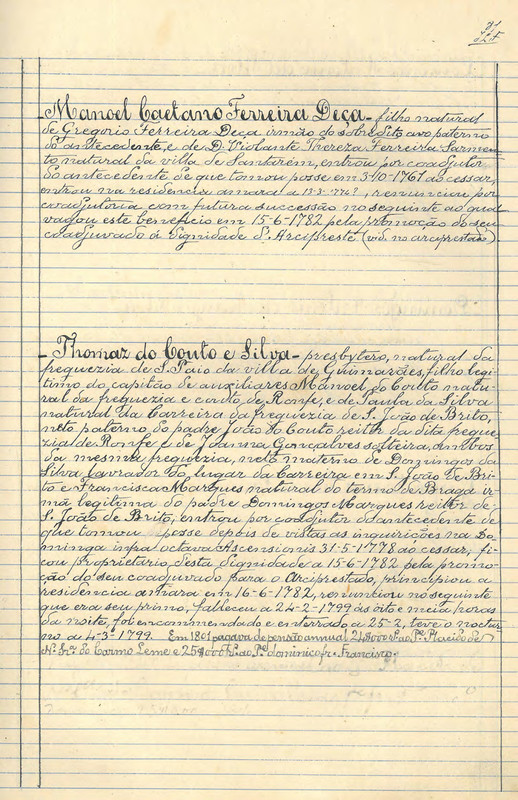 _ Manoel Caetano Ferreira Deça _ filho natural
de Gregorio Ferreira Deça irmão do sobredito avo paterno
do antecedente, e de D. Violante Thereza Ferreira Sarmen-
to natural da villa de Santarém, entrou por coadjutor
do antecedente de que tomou posse em 3-10-1767 ao cessar,
entrou na residencia amara a 13-3-, renunciou por
coadjutoria com futura successão no seguinte ao qual
vagou este beneficio em 15-6-1782 pela promoção do seu
coadjuvado á dignidade d'Arcipreste (vid. no arciprestado)
_ Thomaz do Couto e Silva _ presbytero, natural da
freguezia de S. Paio da villa de Guimarães, filho legi-
timo do capitão de auxiliares Manoel do Couto natu-
ral da freguezia e couto de Ronfe, e de Paula da Silva
natural da Carreira da freguezia de S. João de Brito,
neto paterno do padre João do Couto reitor da dita fregue-
zia de Ronfe e de Joanna Gonçalves solteira, ambos
da mesma freguezia, neto materno de Domingos da
Silva lavrador do lugar da Carreira em S. João de Bri-
to e Francisca Marques natural do termo de Braga ir-
mã legitima do padre Domingos Marques reitor de
S. João de Brito, entrou por coadjutor do antecedente de
que tomou posse depois de vistas as inquirições na Do-
minga infra octava Ascensionis 31-5-1778 ao cessar, fi-
cou proprietario desta dignidade a 15-6-1782 pela promo-
ção do seu coadjuvado para o Arciprestado, principiou a
residencia amara em 16-6-1782, renunciou no seguinte
que era seu primo, falleceu a 24-2-1799 ás oito e meia horas
da noite, foi encommendado e enterrado a 25-2, teve o noctur-
no a 4-3-1799. Em 1801 pagava de pensão annual ao Pe. Placido de
N. Srª do Carmo Leme e ao Pe. dominico fr. Francisco.